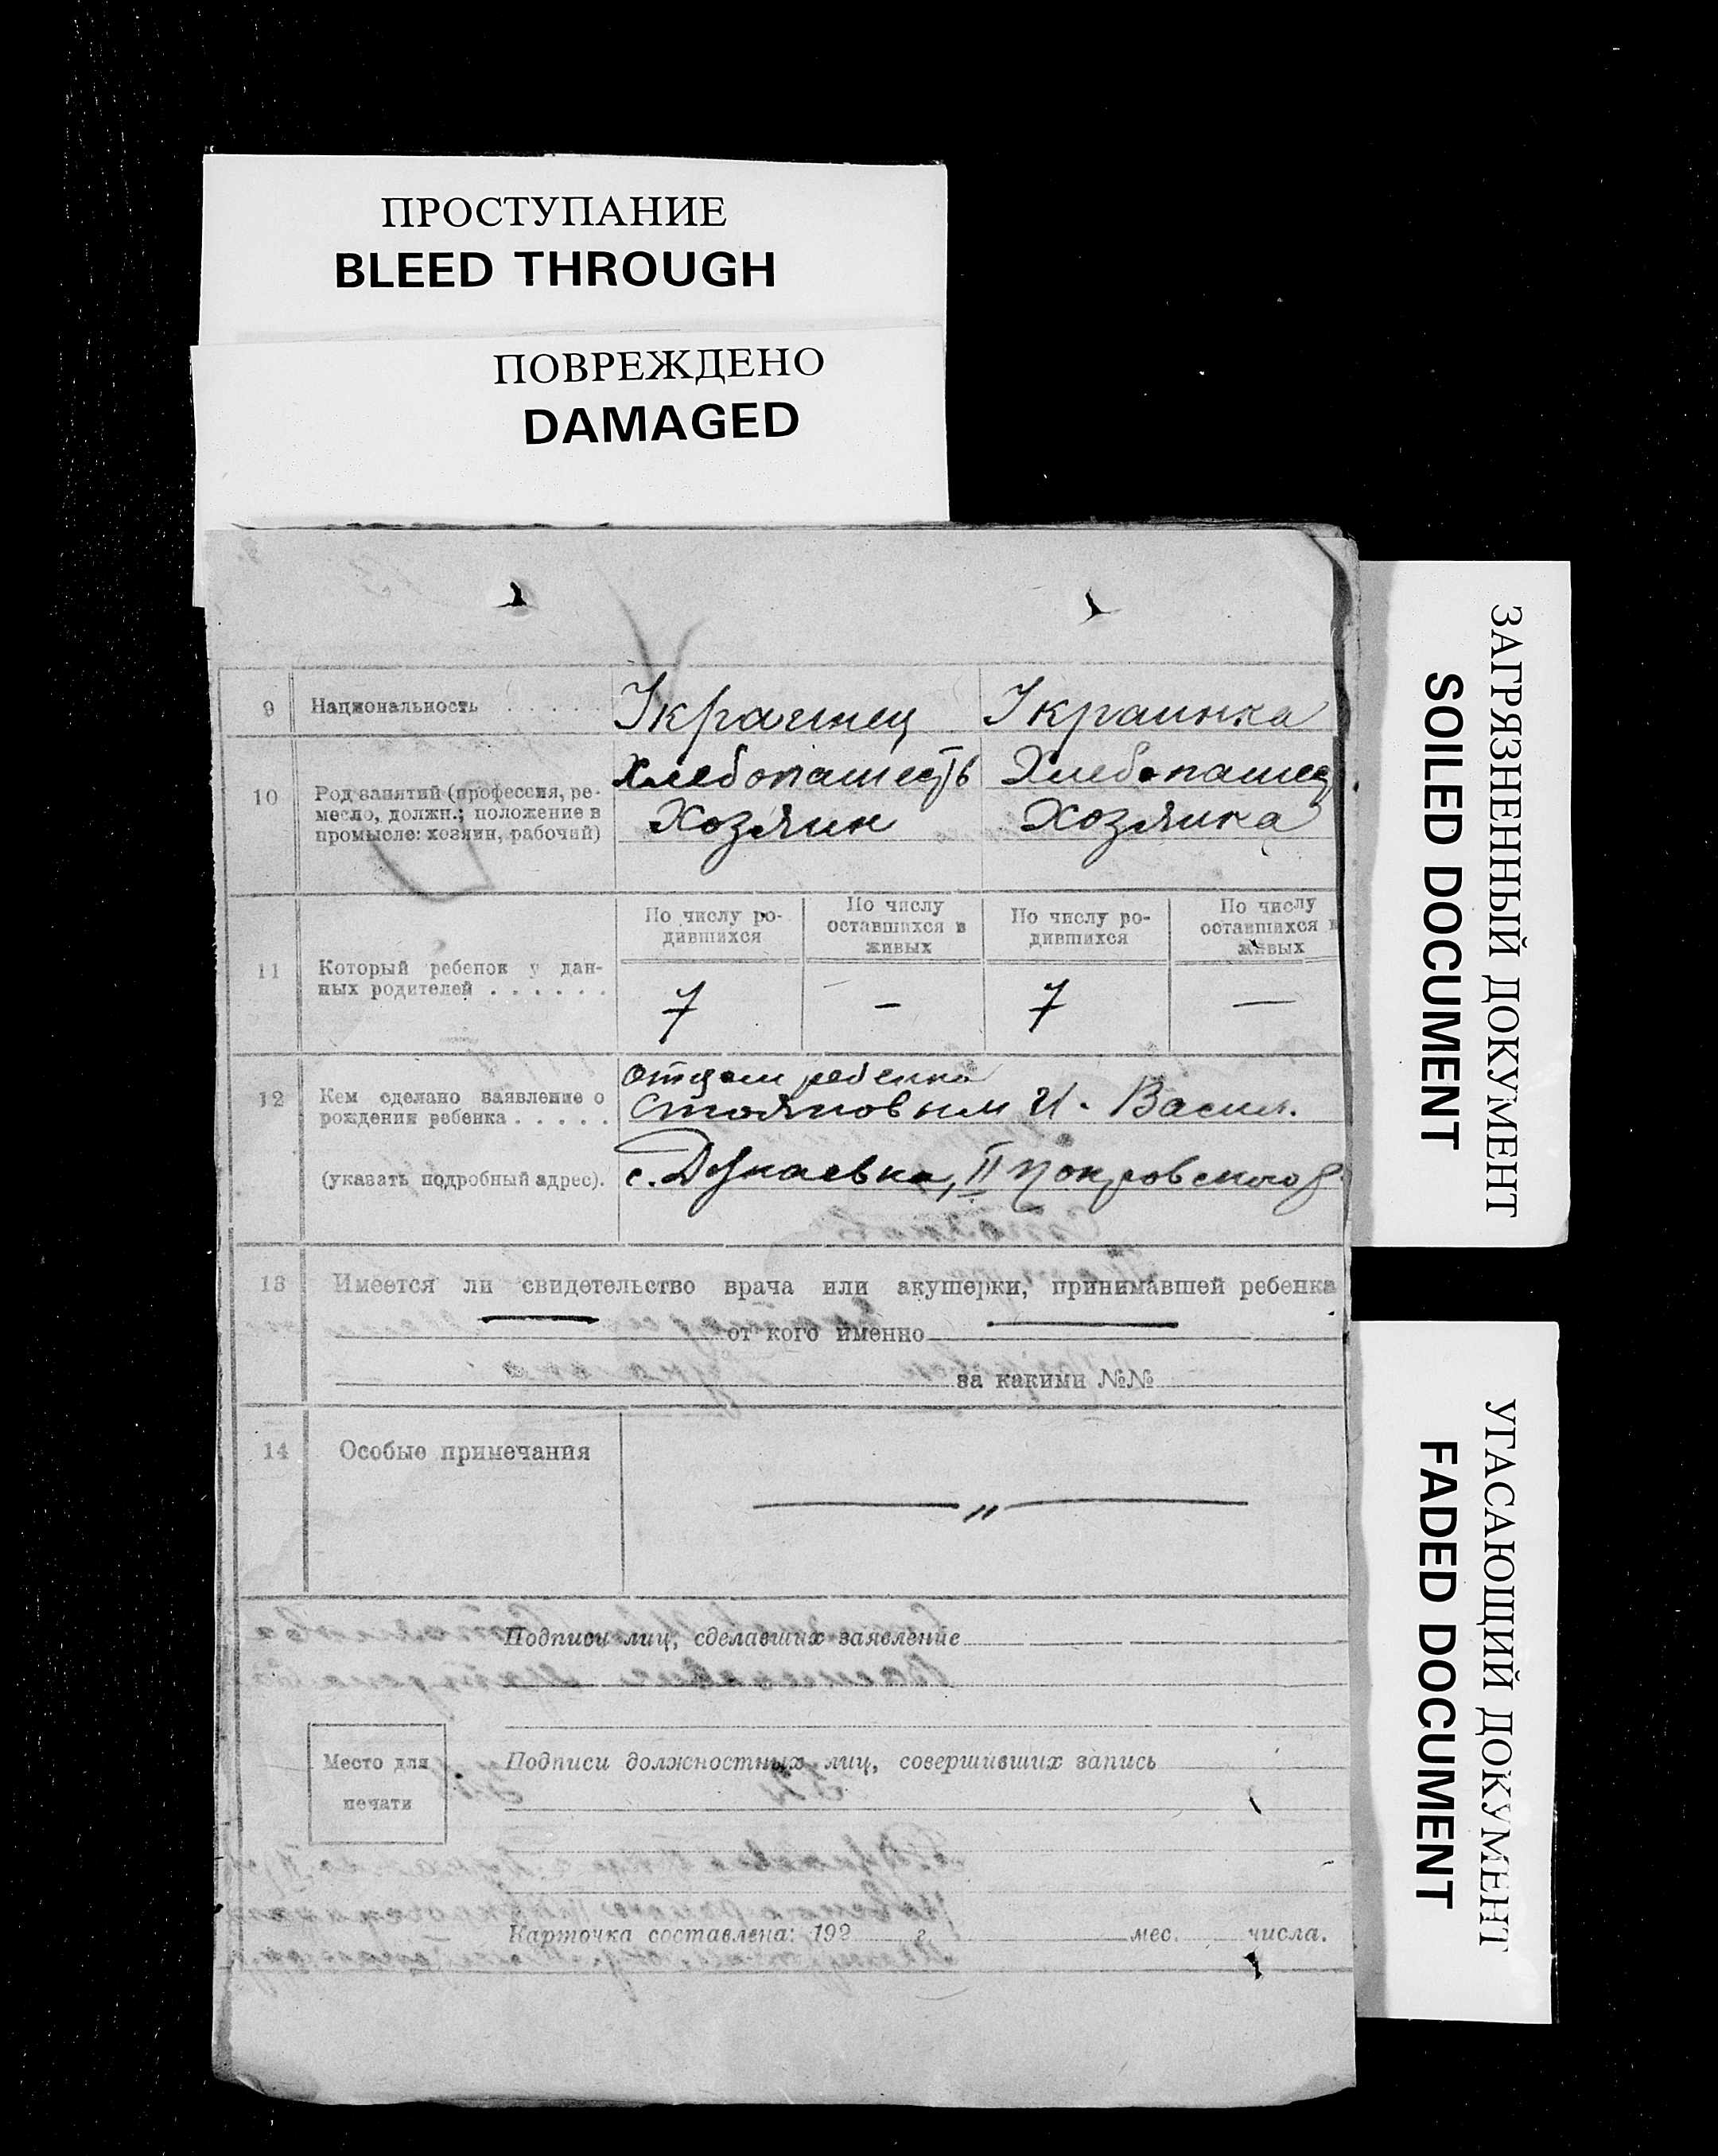 ПРОСТУПАНИЕ
BLEED THROUGH
ПОВРЕЖДЕНО
DAMAGED
9 Национальность . . . . . Украинец Украинка
10 Род занятий (профессия, ре-
месло, должн.; положение в
промысле: хозяин, рабочий)
Хлебопашеств Хлебопашец
Хозяин Хозяика
11 Который ребенок у дан-
ных родителей . . . . . .
По числу ро-
дившихся
По числу
оставшихся в
живых
По числу ро-
дившихся
По числу
оставшихся в
живых
7 - 7 —
12 Кем сделано заявление о
рождении ребенка . . . . .
(указать подробный адрес).
отцом ребенка
Стояновым И. Васил.
с. Дунаевка, II Покровского
13 Имеется ли свидетельство врача или акушерки, принимавшей ребенка
— от кого именно —
за какими №№
14 Особые примечания
— " —
Подписи лиц, сделавших заявление
Место для
печати
Подписи должностных лиц, совершивших запись
Карточка составлена: 192 г. мес. числа.
ЗАГРЯЗНЕННЫЙ ДОКУМЕНТ
SOILED DOCUMENT
УГАСАЮЩИЙ ДОКУМЕНТ
FADED DOCUMENT